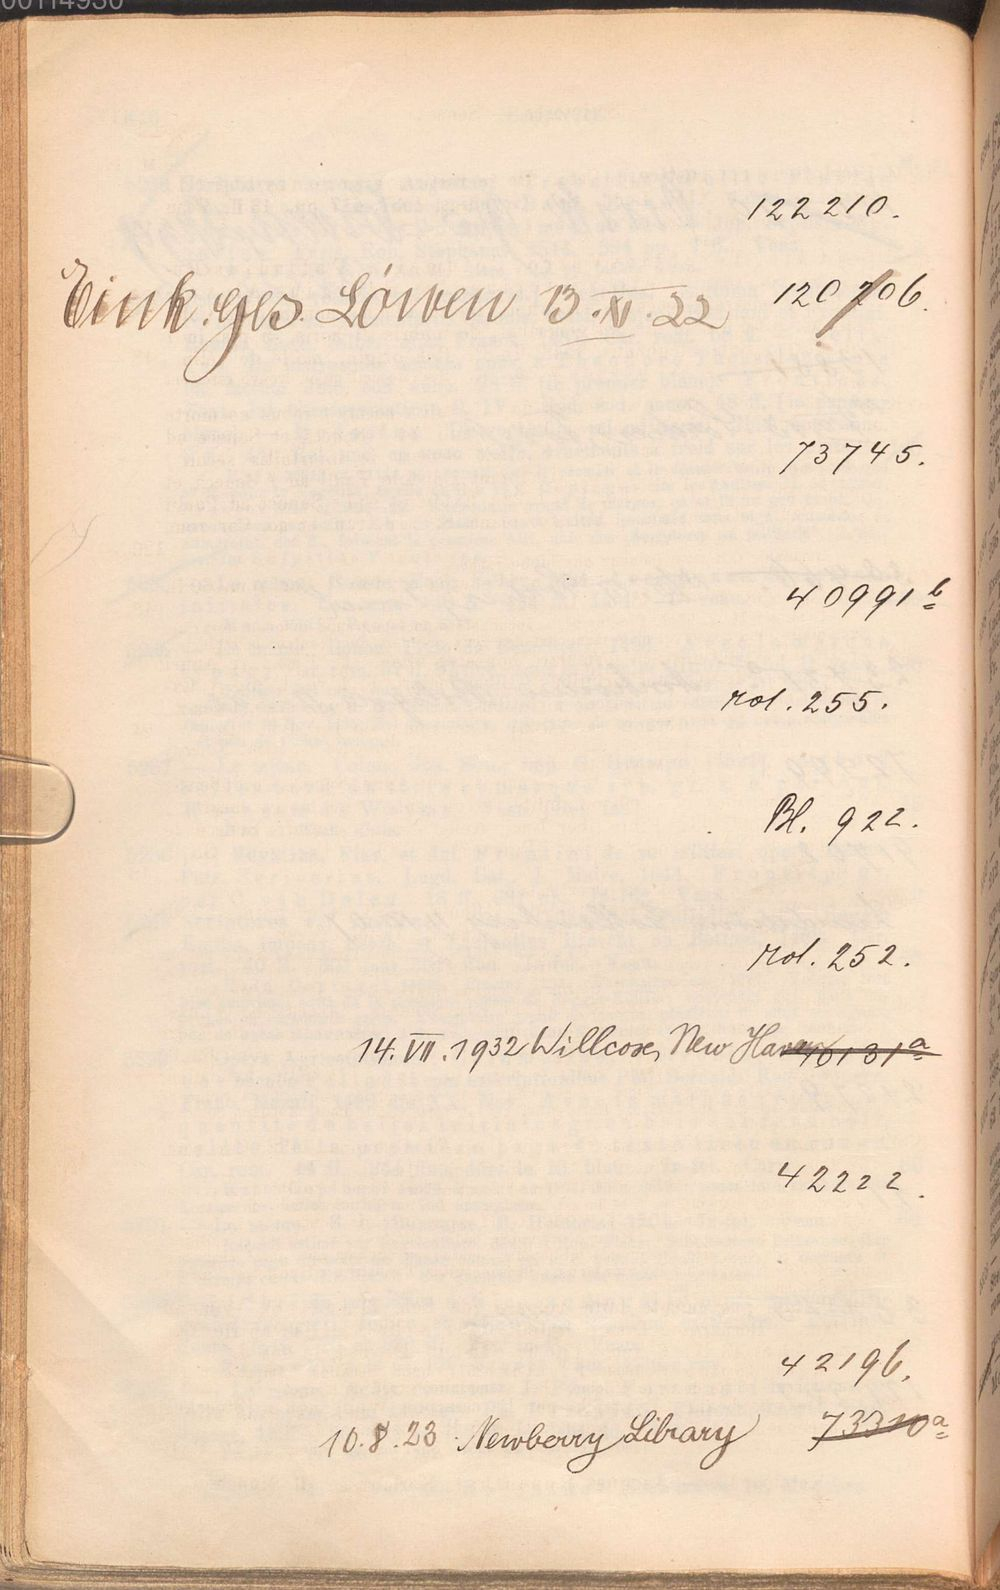 00114930
122210.
Eink. ges. Löwen 13.XI.22 120706.
73745.
40991b
rol. 255.
Bl. 922.
rol. 252.
14.VII.1932 Willcox, New Haven 131a
42222.
42196.
10.8.23 Newberry Library 73310a